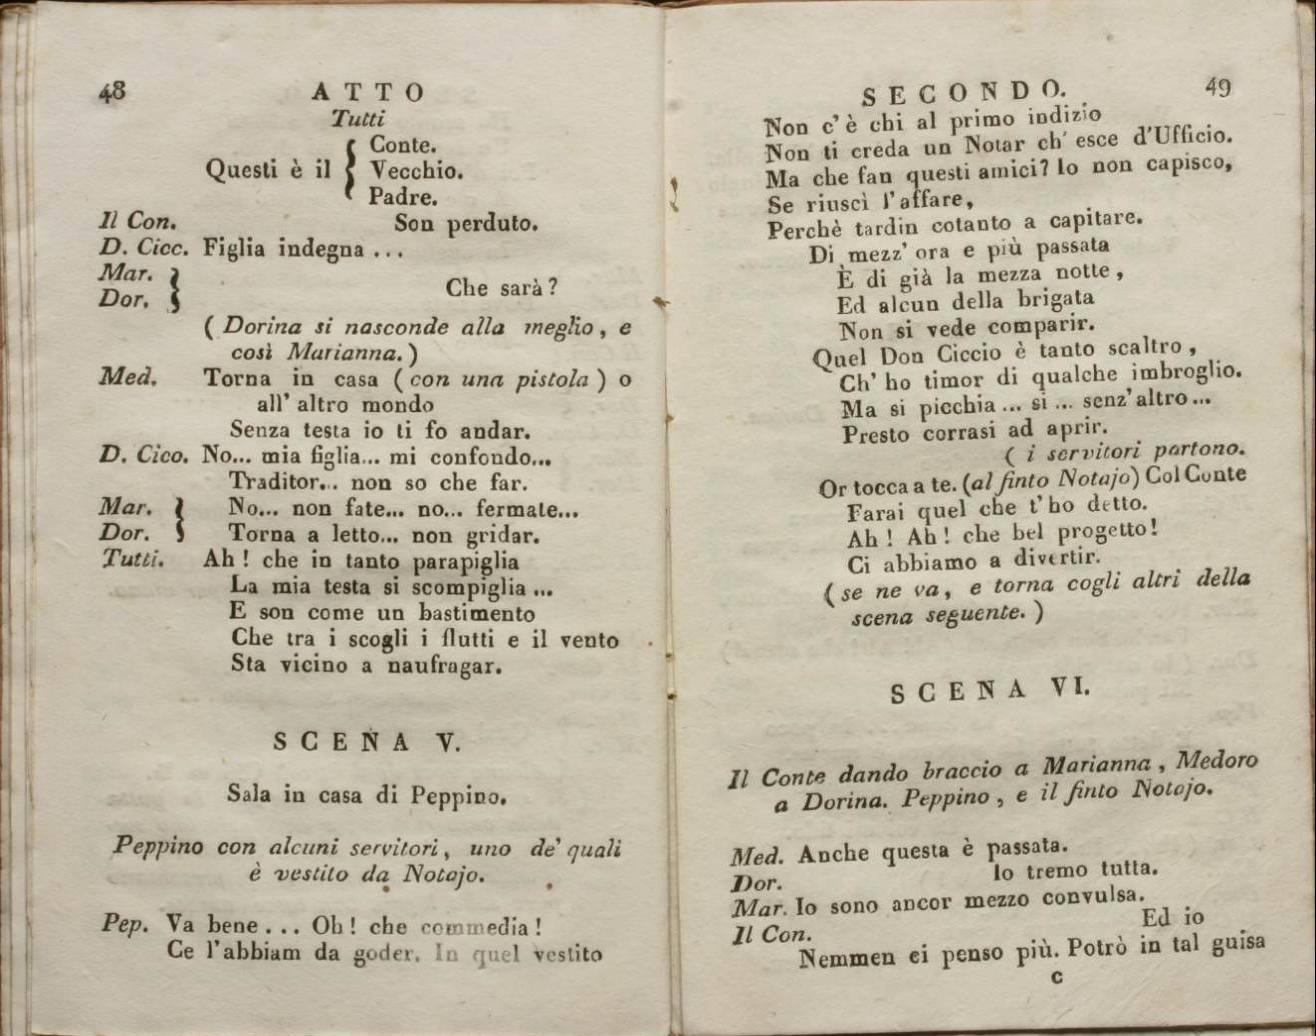 48 ATTO
Tutti
Conte.
Questi è il { Vecchio.
Padre.
Il Con. Son perduto.
D. Cicc. Figlia indegna ...
Mar. }
Dor. } Che sarà?
( Dorina si nasconde alla meglio, e
così Marianna. )
Med. Torna in casa ( con una pistola ) o
all' altro mondo
Senza testa io ti fo andar.
D. Cico. No... mia figlia... mi confondo...
Traditor... non so che far.
Mar. } No... non fate... no... fermate...
Dor. } Torna a letto... non gridar.
Tutti. Ah ! che in tanto parapiglia
La mia testa si scompiglia ...
E son come un bastimento
Che tra i scogli i flutti e il vento
Sta vicino a naufragar.
SCENA V.
Sala in casa di Peppino.
Peppino con alcuni servitori, uno de' quali
è vestito da Notajo.
Pep. Va bene ... Oh ! che commedia !
Ce l'abbiam da goder. In quel vestito
SECONDO. 49
Non c'è chi al primo indizio
Non ti creda un Notar ch' esce d'Ufficio.
Ma che fan questi amici? Io non capisco,
Se riuscì l'affare,
Perchè tardin cotanto a capitare.
Di mezz' ora e più passata
È di già la mezza notte,
Ed alcun della brigata
Non si vede comparir.
Quel Don Ciccio è tanto scaltro,
Ch' ho timor di qualche imbroglio.
Ma si picchia ... si ... senz'altro...
Presto corrasi ad aprir.
( i servitori partono.
Or tocca a te. (al finto Notajo) Col Conte
Farai quel che t'ho detto.
Ah ! Ah ! che bel progetto!
Ci abbiamo a divertir.
( se ne va, e torna cogli altri della
scena seguente. )
SCENA VI.
Il Conte dando braccio a Marianna, Medoro
a Dorina. Peppino, e il finto Notojo.
Med. Anche questa è passata.
Dor. Io tremo tutta.
Mar. Io sono ancor mezzo convulsa.
Il Con. Ed io
Nemmen ci penso più. Potrò in tal guisa
c